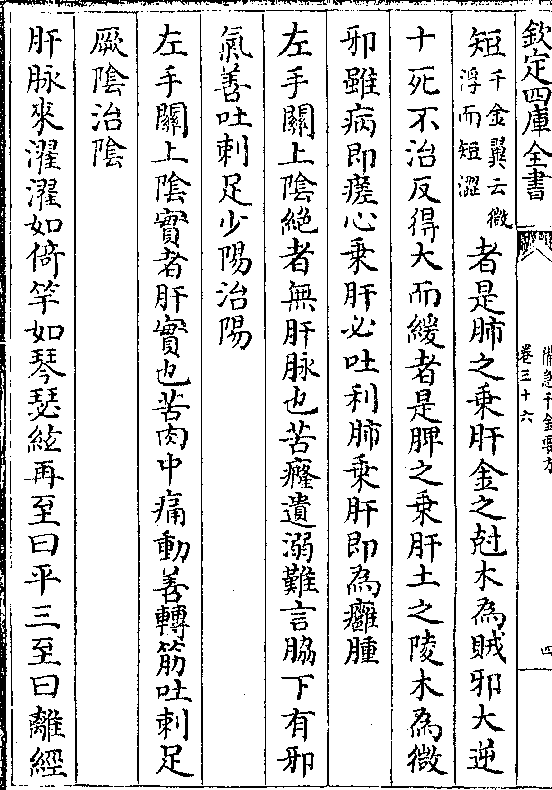 欽定四庫全書
備急千金要方
卷三十六
四
短千金翼云微浮而短澀者是肺之乗肝金之尅木為賊邪大逆
十死不治反得大而緩者是脾之乗肝土之陵木為微
邪雖病即瘥心乗肝必吐利肺乗肝即為癰腫
左手關上陰絶者無肝脉也苦癃遺溺難言脇下有邪
氣善吐刺足少陽治陽
左手關上陰實者肝實也苦肉中痛動善轉筋吐刺足
厥陰治陰
肝脉來濯濯如倚竿如琴瑟絃再至曰平三至曰離經